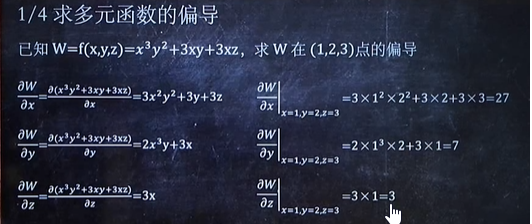 1/4 求多元函数的偏导
已知 W=f(x,y,z)=x³y²+3xy+3xz，求 W 在 (1,2,3)点的偏导
∂W/∂x=∂(x³y²+3xy+3xz)/∂x=3x²y²+3y+3z ∂W/∂x|x=1,y=2,z=3 =3×1²×2²+3×2+3×3=27
∂W/∂y=∂(x³y²+3xy+3xz)/∂y=2x³y+3x ∂W/∂y|x=1,y=2,z=3 =2×1³×2+3×1=7
∂W/∂z=∂(x³y²+3xy+3xz)/∂z=3x ∂W/∂z|x=1,y=2,z=3 =3×1=3